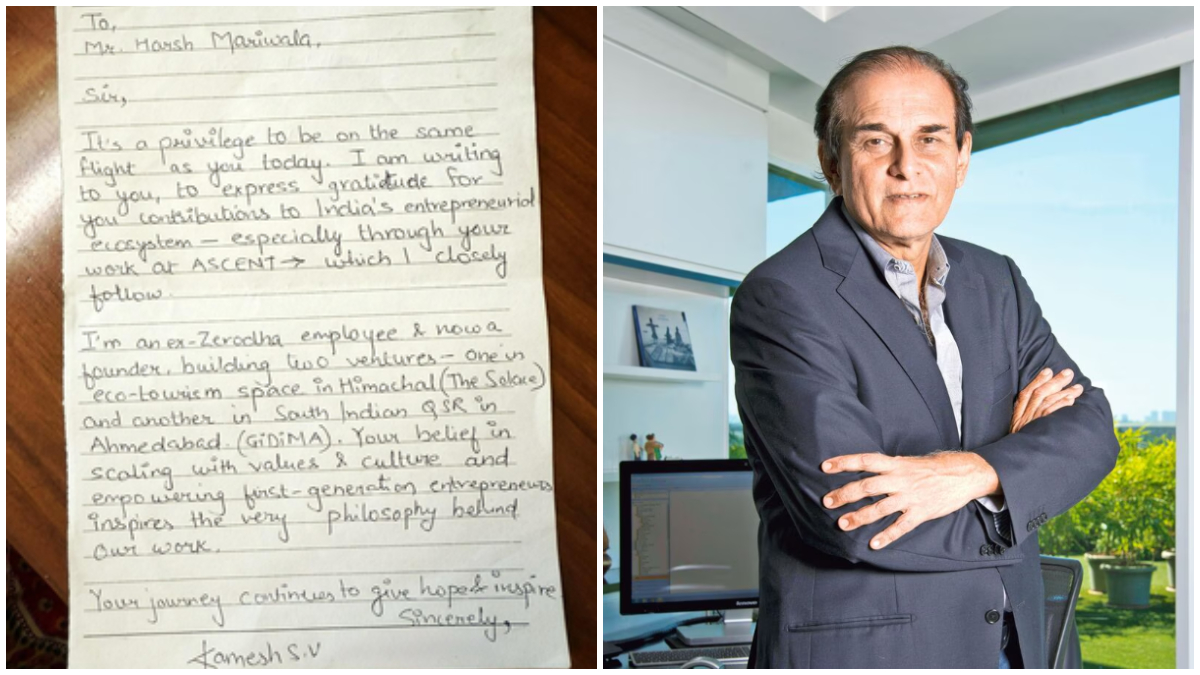 To,
Mr. Harsh Mariwala,
Sir,
It's a privilege to be on the same
flight as you today. I am writing
to you, to express gratitude for
you contributions to India's entrepreneurial
ecosystem – especially through your
work at ASCENT → which I closely
follow.
I'm an ex-Zerodha employee & now a
founder, building two ventures – one in
eco-tourism space in Himachal (The Solace)
and another in South Indian QSR in
Ahmedabad. (GiDiMA). Your belief in
scaling with values & culture and
empowering first-generation entrepreneurs
inspires the very philosophy behind
our work.
Your journey continues to give hope & inspire
Sincerely,
Kamesh S.V